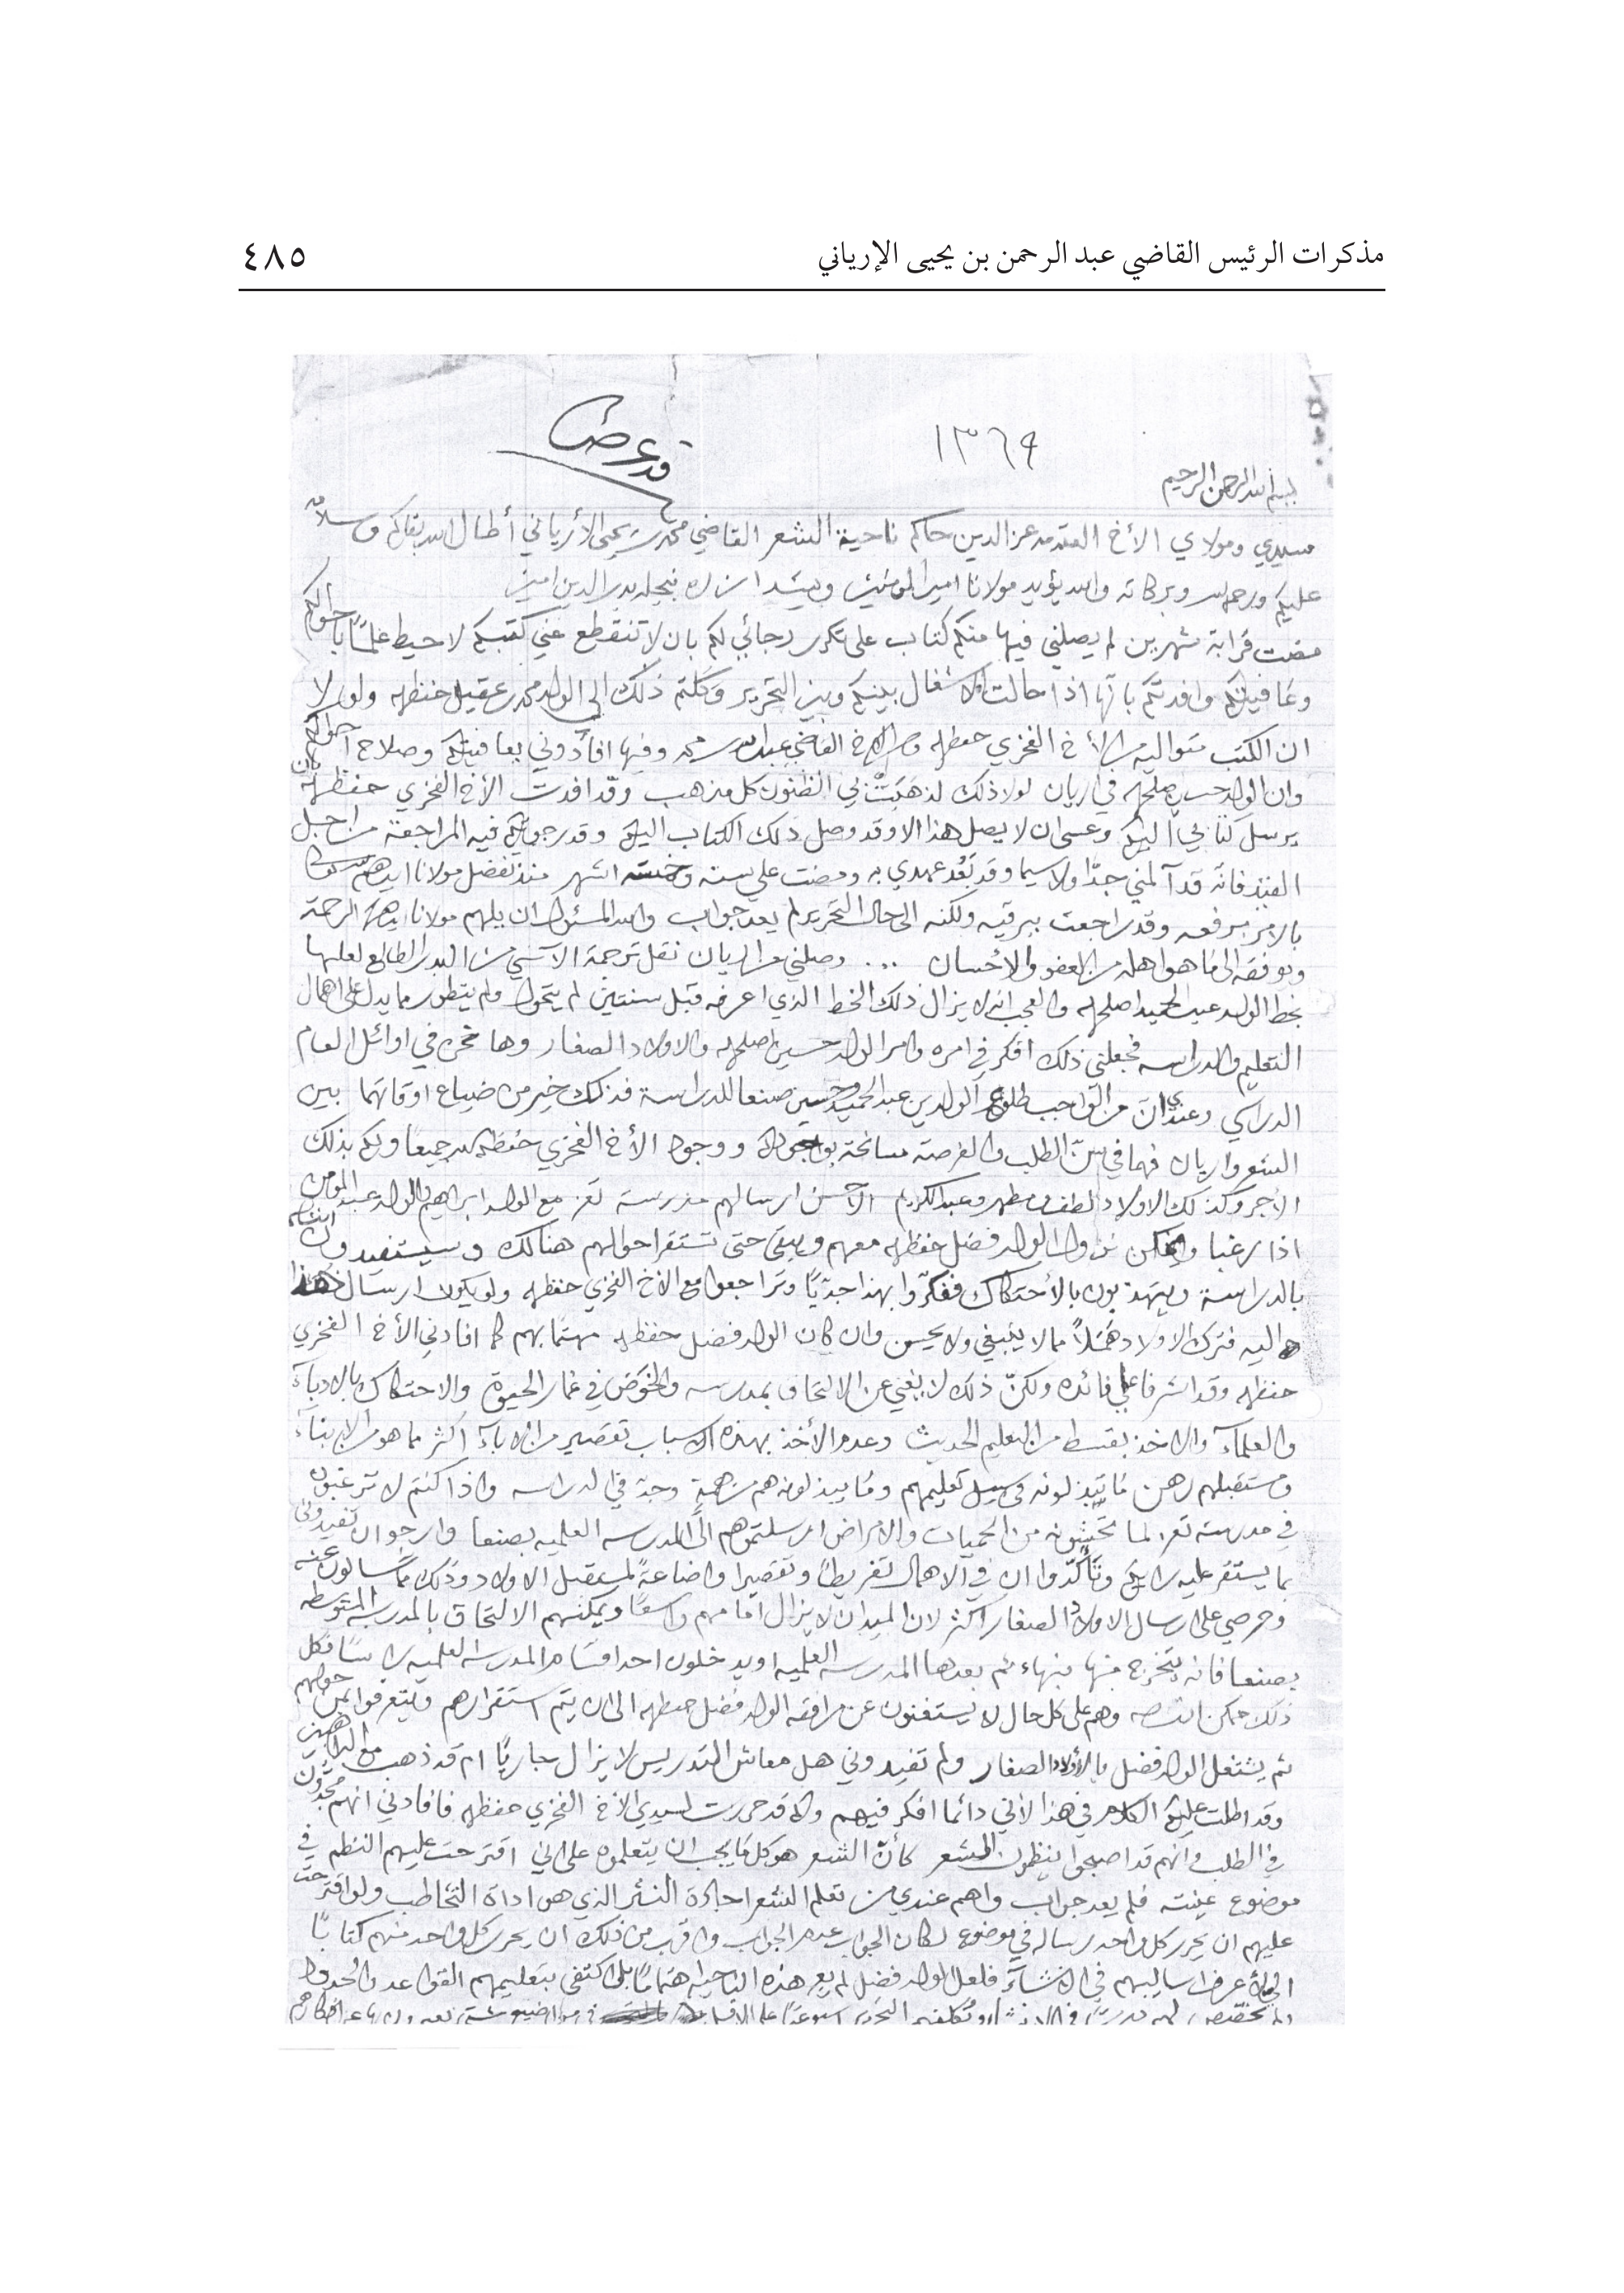 مذكرات الرئيس القاضي عبد الرحمن بن يحيى الإرياني ٤٨٥
١٣٦٩
قد عرضنا
بسم الله الرحمن الرحيم
سيدي ومولاي الأخ العلامة عز الدين حاكم ناحية الشعر القاضي محمد بن يحيى الأرياني أطال الله بقاكم وسلام
عليكم ورحمة الله وبركاته والله يؤيد مولانا امير المؤمنين ويشد ازره بنجله بدر الدين امين
مضت قرابة شهرين لم يصلني فيها منكم كتاب على تكرر رجائي لكم بان لا تنقطع عني كتبكم لاحيط علمًا باحوالكم
وعافيتكم وافدتكم بانها اذا حالت الاشغال بينكم وبين التحرير وكلتم ذلك الى الولد محمد عقيل حفظه الله ولولا
ان الكتب متواليه من الأخ الفخري حفظه الله ومن الاخ القاضي عبدالله محمد وفيها افادوني بعافيتكم وصلاح احوالكم
وان الولد حسين اصلحه الله في اريان لولا ذلك لذهبت بي الظنون كل مذهب وقد افدت الأخ الفخري حفظه الله بان
يرسل كتابي اليكم وعسى ان لا يصل هذا الا وقد وصل ذلك الكتاب اليكم وقد رجوتكم فيه المراجعة من اجل
القيد فانه قد آلمني جدًا ولا سيما وقد بعد عهدي به ومضت علي سنه وخمسة اشهر منذ تفضل مولانا ايده الله
بالامر برفعه وقد راجعت ببرقيه ولكنه الى حال التحرير لم يعد جواب والله المسئول ان يلهم مولانا ايده الله الرحمة
ويوفقه الى ما هو اهله من العفو والإحسان ... وصلني من اريان نقل ترجمة الآنسي من البدر الطالع لعلها
بخط الولد عبد الحميد اصلحه الله والعجب انه لا يزال ذلك الخط الذي اعرفه قبل سنتين لم يتحول ولم يتطور مما يدل على اهمال
التعليم والدراسه فجعلني ذلك افكر في امره وامر الولد حسين اصلحه الله والاولاد الصغار وها نحن في اوائل العام
الدراسي وعندي ان من الواجب طلوع الولدين عبد الحميد وحسين صنعا للدراسة فذلك خير من ضياع اوقاتهما بين
الشعر واريان فهما في سن الطلب والفرصة سانحة بوجودي ووجود الأخ الفخري حفظكم الله جميعا ولكم بذلك
الأجر وكذلك الاولاد لطف ومطهر وعبد الكريم الأحسن ارسالهم مدرسة تعز مع الولد ابراهيم والولد عبد المؤمن
اذا رغبا ويمكن نزول الولد فضل حفظه الله معهم ويبقى حتى تستقر احوالهم هنالك وسيستفيدون
بالدراسة ويتهذبون بالأحتكاك ففكروا بهذا جديًا وتراجعوا مع الاخ الفخري حفظه الله ولو يكون ارسال
اليه فترك الاولاد هملًا مما لا ينبغي ولا يحسن وان كان الولد فضل حفظه الله مهتما بهم كما افادني الأخ الفخري
حفظه الله وقد اشرفا على فائده ولكن ذلك لا يغني عن الالتحاق بمدرسه والخوض في غمار الحيوة والاحتكاك بالادباء
والعلماء والاخذ بقسط من التعليم الحديث وعدم الأخذ بهذه الاسباب تقصير من الآباء اكثر مما هو من الابناء
ومستقبلهم رهن ما تبذلونه في سبيل تعليمهم وما يبذلونه هم من همة وجد في الدراسه واذا كنتم لا ترغبون
في مدرسة تعز لما تخشونه من الحميات والامراض ارسلتموهم الى المدرسه العلميه بصنعا وارجو ان تفيدوني
بما يستقر عليه رايكم وتأكدوا ان في الاهمال تفريطًا وتقصيرا واضاعةً لمستقبل الاولاد وذلك مما تسألون عنه
وحرصي على ارسال الاولاد الصغار اكثر لان الميدان لا يزال امامهم واسعًا ويمكنهم الالتحاق بالمدرسة المتوسطه
بصنعا فانه يتخرج منها بنهاء ثم بعدها المدرسه العلميه او يدخلون احد اقسام المدرسه العلميه راسًا فكل
ذلك ممكن وهم على كل حال لا يستغنون عن مرافقة الولد فضل حفظه الله الى ان يتم استقرارهم ويتعرفوا بمن حولهم
ثم يشتغل الولد فضل بالأولاد الصغار ولم تفيدوني هل معاش التدريس لا يزال جاريًا ام قد ذهب مع
وقد اطلت عليكم الكلام في هذا لأني دائما افكر فيهم وقد حررت لسيدي الأخ الفخري حفظه الله فافادني انهم مجدون
في الطلب وانهم قد اصبحوا ينظمون الشعر كأن الشعر هو كل ما يجب ان يتعلموه على اني اقترحت عليهم النظم في
موضوع عينته فلم يعد جواب واهم عندي من تعلم الشعر اجادة النثر الذي هو اداة التخاطب ولو اقترحت
عليهم ان يحرر كل واحد رساله في موضوع لكان الجواب عدم الجواب واقرب من ذلك ان يحرر كل واحد منهم كتابًا
الي لأعرف اساليبهم في الانشاء فلعل الولد فضل لم يعر هذه الناحية اهتمامًا بل اكتفى بتعليمهم القواعد والحدود